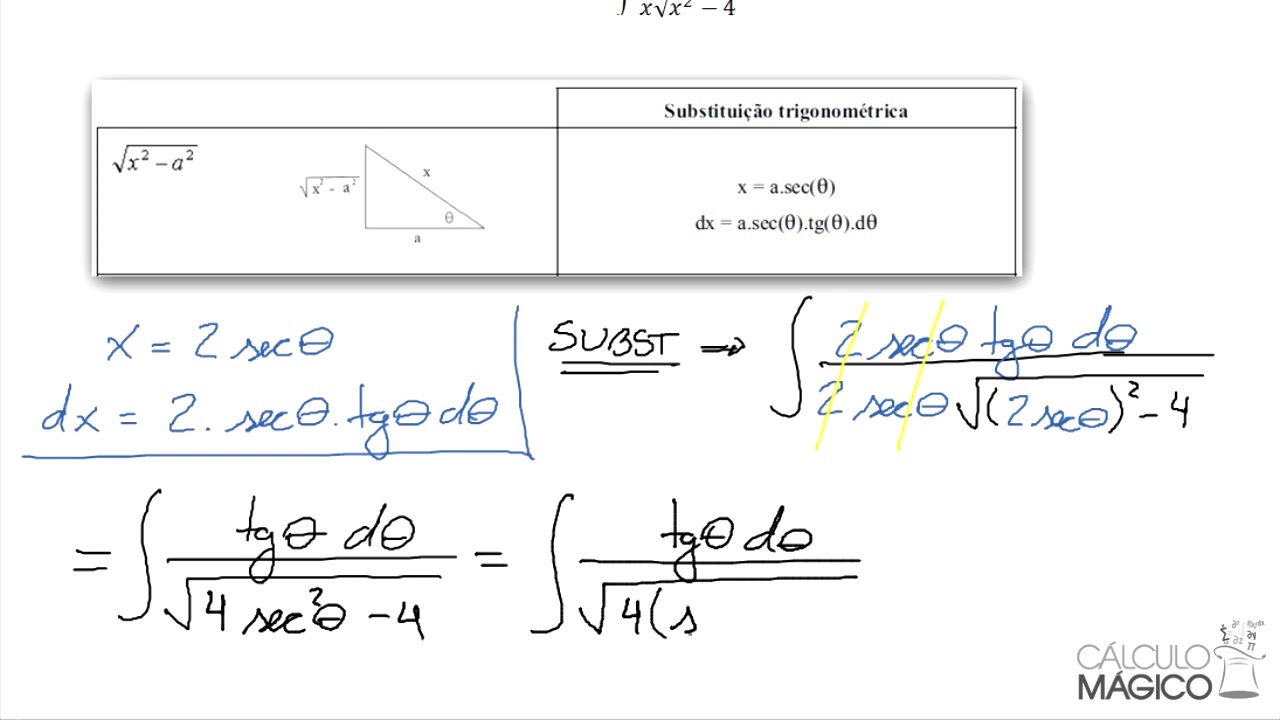 ∫ x√x² − 4
Substituição trigonométrica
√x² − a²
√x² − a²
x
θ
a
x = a.sec(θ)
dx = a.sec(θ).tg(θ).dθ
x = 2 secθ
dx = 2. secθ. tgθ dθ
SUBST → ∫ 2 secθ tgθ dθ / 2 secθ √(2 secθ)² − 4
= ∫ tgθ dθ / √4 sec²θ − 4 = ∫ tgθ dθ / √4(s
CÁLCULO
MÁGICO